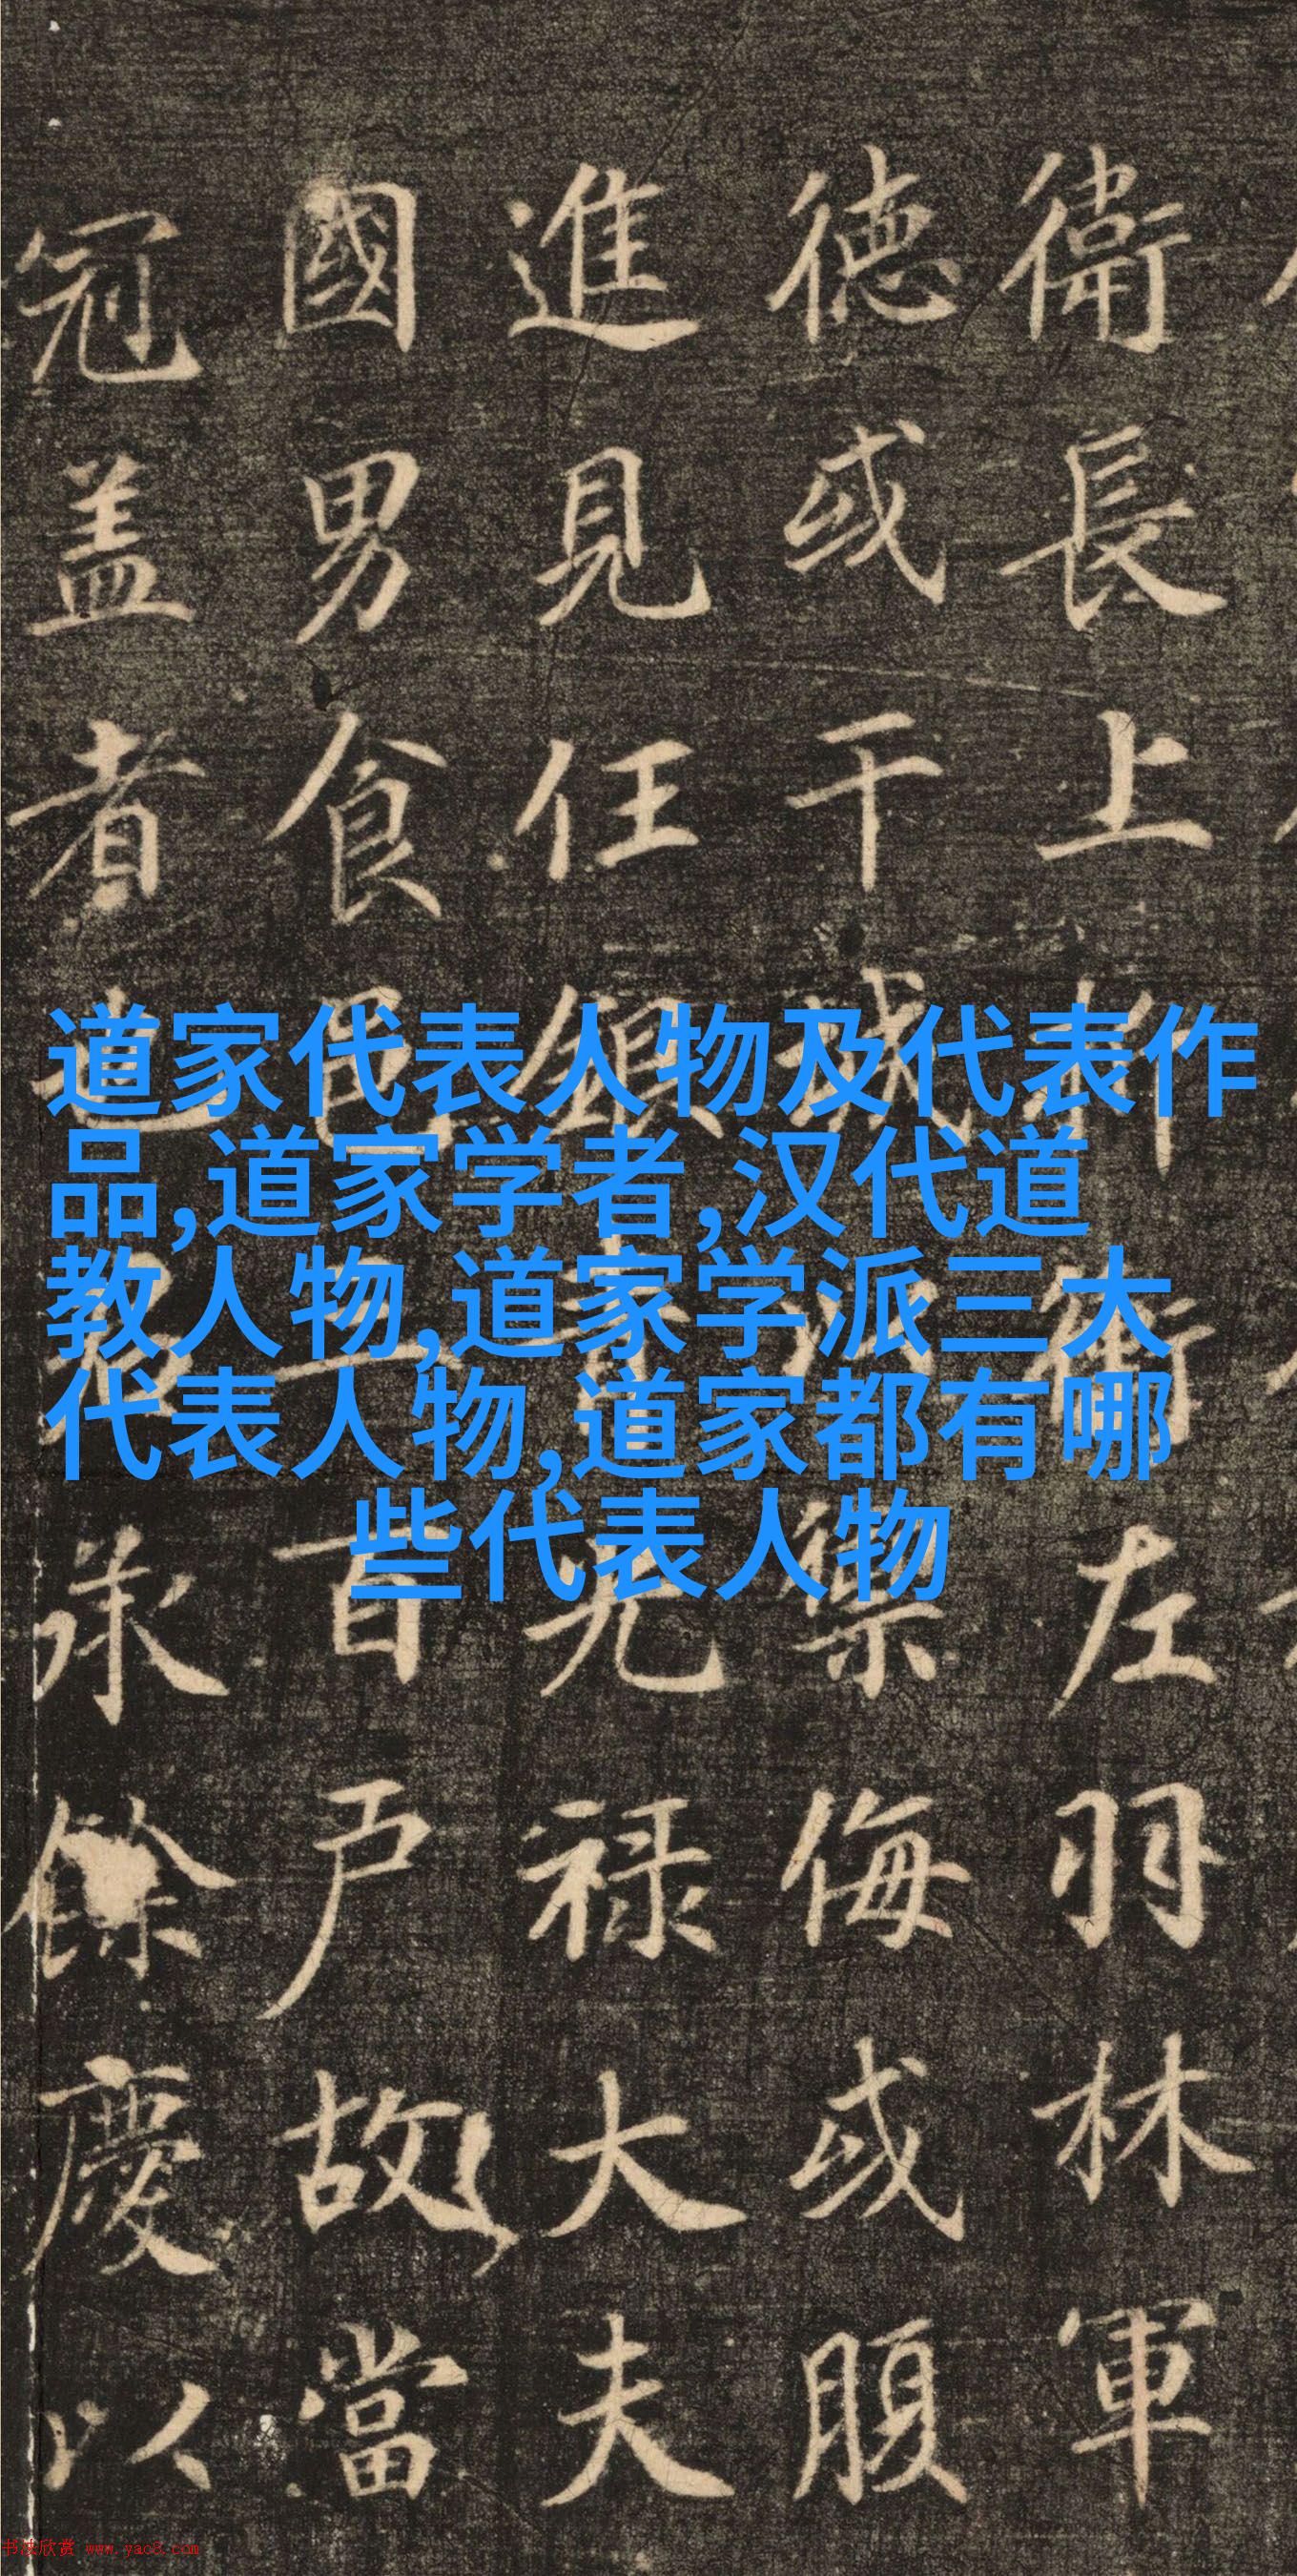 衛長上柳衛左羽林軍
德或干城禦侮或腹
進見任鎮光禄大夫
國男食邑三百户故當
冠盖者也承餘慶以
道家代表人物及代表作
品,道家学者,汉代道
教人物,道家学派三大
代表人物,道家都有哪
些代表人物
书法欣赏 www.yac8.com